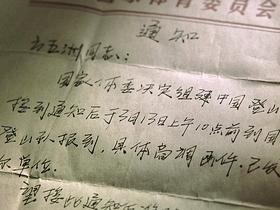 国家体育委员会
通知
方五洲同志：
国家体委决定组建中国登山
接到通知后于3月13日上午10点前到国
登山队报到，具体局相函件，已发
尔单位。
望接此通知后